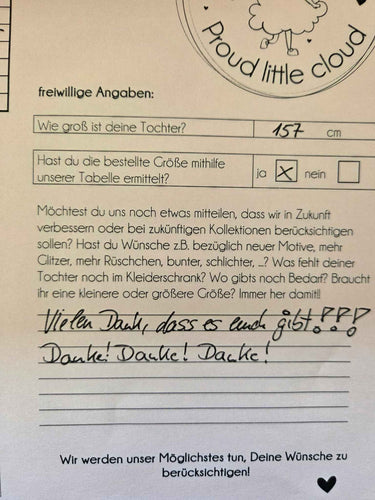 Proud little cloud
freiwillige Angaben:
Wie groß ist deine Tochter? 157 cm
Hast du die bestellte Größe mithilfe
unserer Tabelle ermittelt? ja x nein
Möchtest du uns noch etwas mitteilen, dass wir in Zukunft
verbessern oder bei zukünftigen Kollektionen berücksichtigen
sollen? Hast du Wünsche z.B. bezüglich neuer Motive, mehr
Glitzer, mehr Rüschchen, bunter, schlichter, ...? Was fehlt deiner
Tochter noch im Kleiderschrank? Wo gibts noch Bedarf? Braucht
ihr eine kleinere oder größere Größe? Immer her damit!!
Vielen Dank, dass es euch gibt!!!
Danke! Danke! Danke!
Wir werden unser Möglichstes tun, Deine Wünsche zu
berücksichtigen!